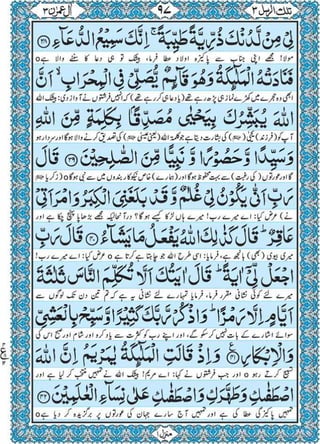 تلك الرسل ٣ ٩٧ اٰل عمرٰن ٣
لِیْ مِنْ لَّدُنْكَ ذُرِّیَّةً طَیِّبَةً ۚ اِنَّكَ سَمِیْعُ الدُّعَآءِ
مولا! مجھے اپنی جناب سے پاکیزہ اولاد عطا فرما، بیشک تو ہی دعا کا سننے والا ہے
فَنَادَتْهُ الْمَلٰٓىِٕكَةُ وَ هُوَ قَآىِٕمٌ یُّصَلِّیْ فِی الْمِحْرَابِ ۙ اَنَّ
ابھی وہ حجرے میں کھڑے نماز ہی پڑھ رہے تھے (یا دعا ہی کر رہے تھے) کہ انہیں فرشتوں نے آواز دی: بیشک اللہ
اللّٰهَ یُبَشِّرُكَ بِیَحْیٰی مُصَدِّقًۢا بِكَلِمَةٍ مِّنَ اللّٰهِ
آپ کو (فرزند) یحیٰی کی بشارت دیتا ہے جو کلمۃ اللہ (یعنی عیسٰی) کی تصدیق کرنے والا ہوگا اور سردار ہو
وَ سَیِّدًا وَّ حَصُوْرًا وَّ نَبِیًّا مِّنَ الصّٰلِحِیْنَ ۝۳۹ قَالَ
گا اور عورتوں (کی رغبت) سے بہت محفوظ ہوگا اور (ہمارے) خاص نیکوکار بندوں میں سے نبی ہوگا (زکریا نے
رَبِّ اَنّٰی یَكُوْنُ لِیْ غُلٰمٌ وَّ قَدْ بَلَغَنِیَ الْكِبَرُ وَ امْرَاَتِیْ
نے) عرض کیا: اے میرے رب! میرے ہاں لڑکا کیسے ہوگا؟ درآنحالیکہ مجھے بڑھاپا پہنچ چکا ہے اور
عَاقِرٌ ؕ قَالَ كَذٰلِكَ اللّٰهُ یَفْعَلُ مَا یَشَآءُ ۝۴۰ قَالَ رَبِّ
میری بیوی (بھی) بانجھ ہے، فرمایا: اسی طرح اللہ جو چاہتا ہے کرتا ہے عرض کیا: اے میرے رب!
اجْعَلْ لِّیْۤ اٰیَةً ؕ قَالَ اٰیَتُكَ اَلَّا تُكَلِّمَ النَّاسَ ثَلٰثَةَ
میرے لئے کوئی نشانی مقرر فرما، فرمایا: تمہارے لئے نشانی یہ ہے کہ تم تین دن تک لوگوں سے
اَیَّامٍ اِلَّا رَمْزًا ؕ وَ اذْكُرْ رَّبَّكَ كَثِیْرًا وَّ سَبِّحْ بِالْعَشِیِّ
سوائے اشارے کے بات نہیں کر سکو گے، اور اپنے رب کو کثرت سے یاد کرو اور شام اور صبح اس کی
وَ الْاِبْكَارِ ۝۴۱ وَ اِذْ قَالَتِ الْمَلٰٓىِٕكَةُ یٰمَرْیَمُ اِنَّ اللّٰهَ
تسبیح کرتے رہو اور جب فرشتوں نے کہا: اے مریم! بیشک اللہ نے تمہیں منتخب کر لیا ہے اور
اصْطَفٰىكِ وَ طَهَّرَكِ وَ اصْطَفٰىكِ عَلٰی نِسَآءِ الْعٰلَمِیْنَ ۝۴۲
تمہیں پاکیزگی عطا کی ہے اور تمہیں آج سارے جہان کی عورتوں پر برگزیدہ کر دیا ہے
منزل ۱